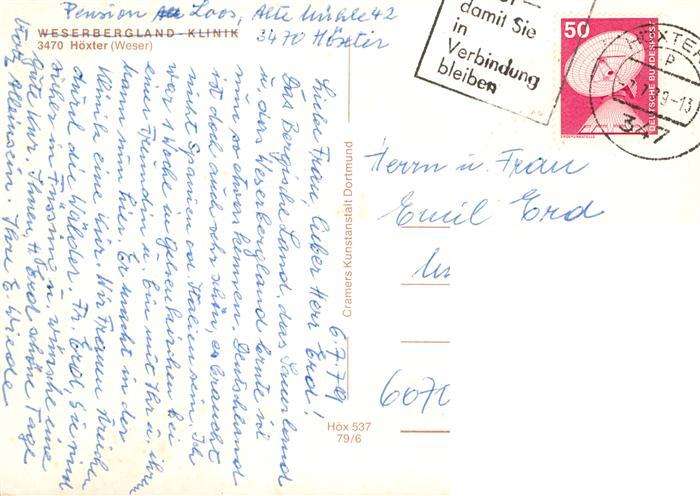 Pension Loos, Alte Mühle 42
WESERBERGLAND-KLINIK
3470 Höxter (Weser)
3470 Höxter
damit Sie
in
Verbindung
bleiben
50
DEUTSCHE BUNDESPOST
HÖXTER
347
6.7.79
Liebe Frau, lieber Herr Erd!
Das Bergische Land, das Sauerland
u. das Weserbergland lernte ich
nun so etwas kennen. Deutschland
ist doch auch sehr schön, es braucht
nicht Spanien od. Italien sein. Ich
war 1 Woche in Gelsenkirchen bei
einer Freundin u. bin mit Ihr u. ihrem
Mann nun hier. Er macht in der
Klinik eine Kur. Wir Frauen streichen
durch die Wälder. Fr. Erd Sie sind
sicher in Füssing u. wünsche eine
gute Kur. Ihnen, H. Erd schöne Tage
trotz Alleinsein. Ihre E. Wiede
Cramers Kunstanstalt Dortmund
Höx 537
79/6
Herrn u. Frau
Emil Erd
6070